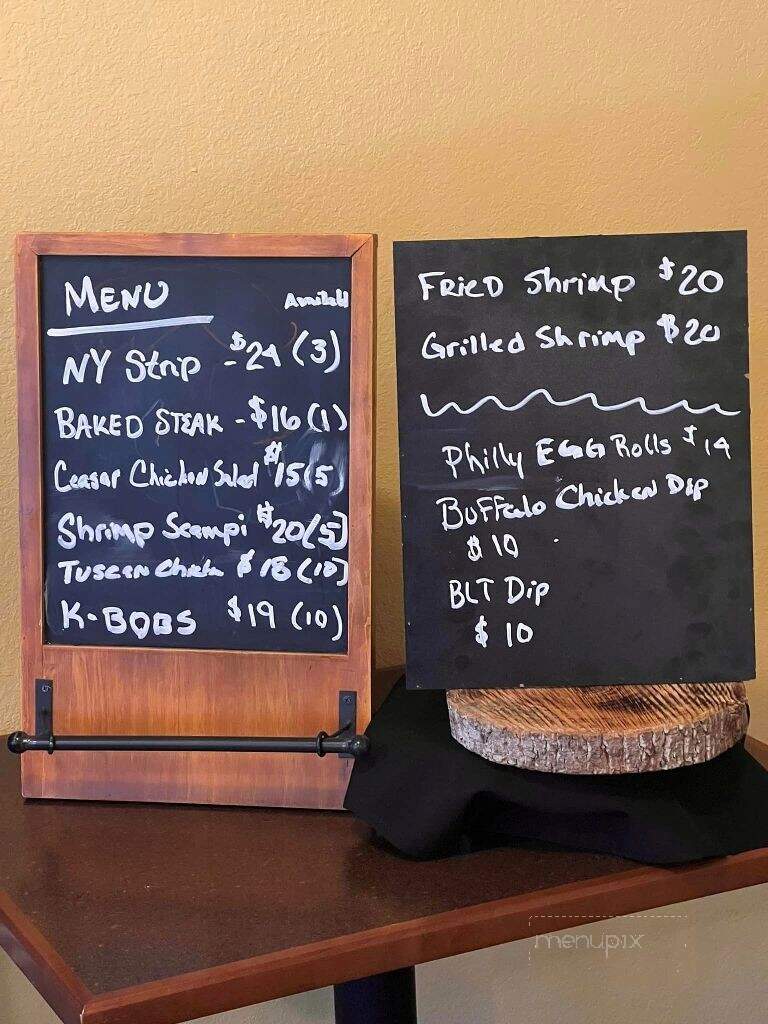 MENU
Available
NY Strip - $24 (3)
BAKED STEAK - $16 (1)
Ceasar Chicken Salad $15 (5
Shrimp Scampi $20 (5)
Tuscan Chicken $18 (10)
K-BOBS $19 (10)
FRIED Shrimp $20
Grilled Shrimp $20
Philly EGG Rolls $14
BUFFalo Chicken Dip
$10
BLT Dip
$10
menupix